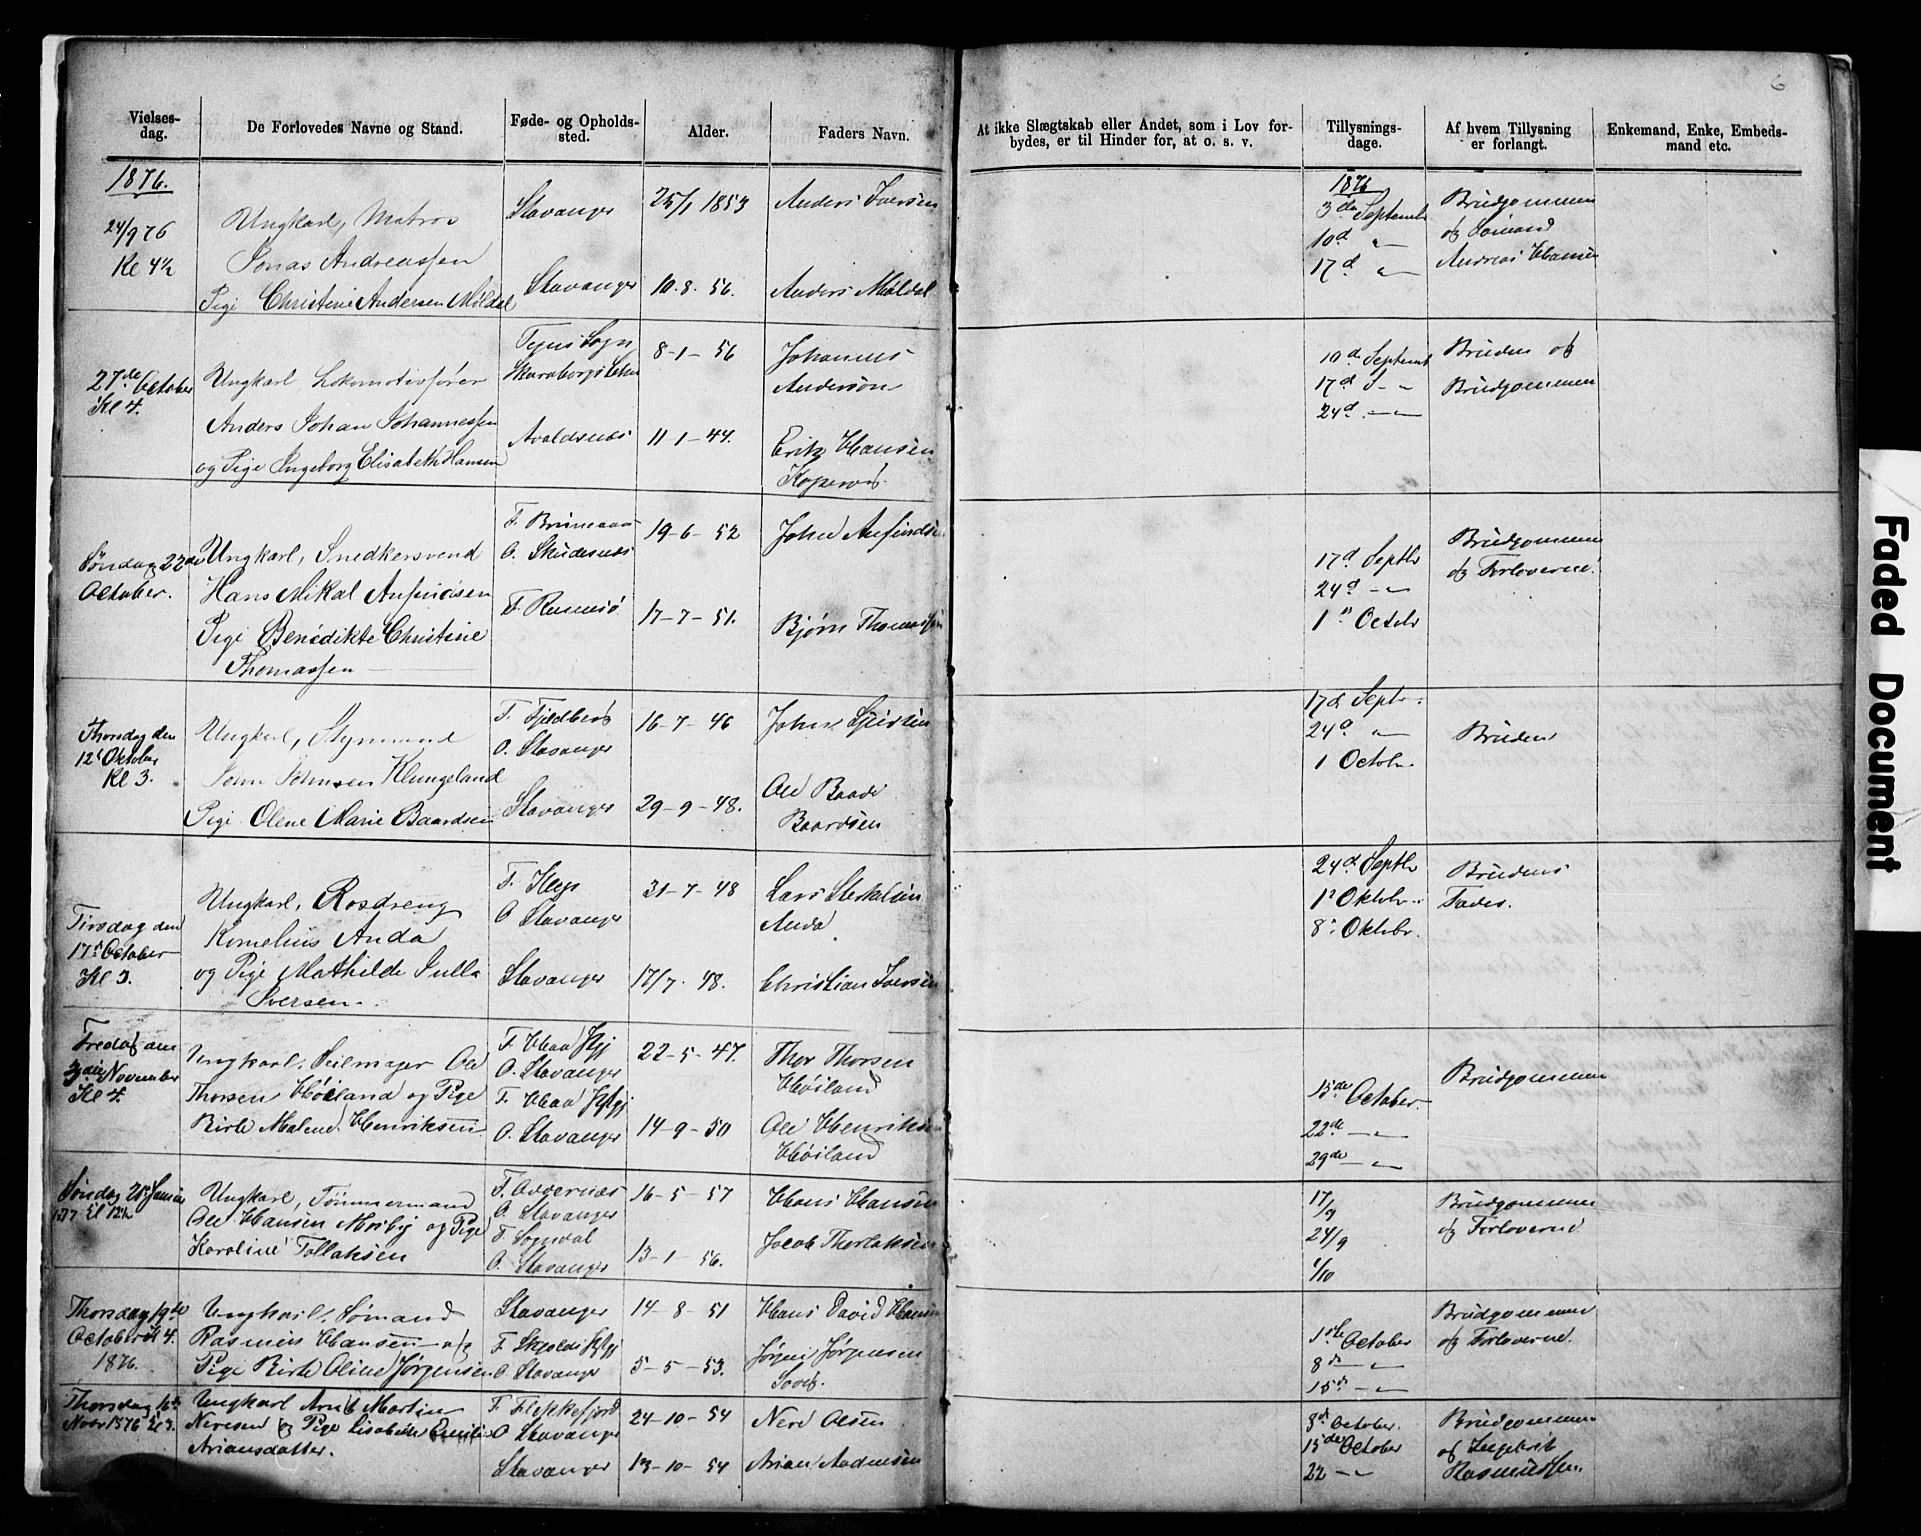 6
Vielses-
dag.
De Forlovedes Navne og Stand.
Føde- og Opholds-
sted.
Alder.
Faders Navn.
At ikke Slægtskab eller Andet, som i Lov for-
bydes, er til Hinder for, at o. s. v.
Tillysnings-
dage.
Af hvem Tillysning
er forlangt.
Enkemand, Enke, Embeds-
mand etc.
1876.
24/9 76
Kl 4½
Ungkarl, Matros
Jonas Andreassen
Pige Christine Andersen Mildal
Stavanger
Stavanger
25/1 1853
10-8-56.
Anders Iversen
Anders Mildal
1876
3de Septembr
10d "
17d "
Brudgommen
og Sömand
Andreas Hansen
27de October
Kl 4.
Ungkarl Lokomotivförer
Anders Johan Johannessen
og Pige Ingeborg Elisabeth Hansen
Sogn
Skaraborgs Lehn
Avaldsnæs
8-1-56
11-1-44.
Johannes
Anderson
Erik Hansen
Kopervik
10de Septembr
17d S- "
24d. - "
Bruden og
Brudgommen
Söndag 22de
October.
Ungkarl, Snedkersvend
Hans Mikal Anfindsen
Pige Benedikte Christine
Thomassen
F.
O. Skudesnæs
F. Rennesö
19-6-52
17-7-51.
John Anfindsen
Bjørn Thomassen
17d Septbr
24d - "
1st Octobr
Brudgommen
og Forloverne.
Thorsdag den
12t Oktober
Kl 3.
Ungkarl, Styrmand
John Johnsen Klungeland
Pige Olene Marie Baardsen
F. Fjeldberg
O. Stavanger
Stavanger
16-7-46
29-9-48.
John
Ole Baade
Baardsen
17d Septr.
24d "
1 Octobr
Bruden
Tirsdag den
17de October
Kl 3.
Ungkarl, Rosdreng
Kornelius Anda
og Pige Mathilde Julla
Iversen.
F. Klep
O Stavanger
Stavanger
31-7-48
17/7-48.
Lars
Anda
Christian Iversen
24d Septbr
1st Oktobr.
8de Oktobr.
Brudens
Fader.
Fredag den
3die November
Kl 4.
Ungkarl, Seilmager Ole
Thorsen Höiland og Pige
Birte Malene Henriksen
F. Haa
O. Stavanger
F. Haa
O. Stavanger
22-5-47.
14-9-50
Thor Thorsen
Höiland
Ole Henriksen
Höiland
15de October.
22de - "
29de - "
Brudgommen
Söndag 21de Januar
1877 Kl 12½
Ungkarl, Tömmermand
Ole Hansen Mosby og Pige
Karoline Tollaksen
F. Oddernæs
O. Stavanger
F. Sogndal
O. Stavanger
16-5-57
13-1-56.
Hans Hansen
Jacob Thorlaksen
17/9
24/9
1/10
Brudgommen
og Forloverne
Thorsdag 19de
October Kl 4.
1876.
Ungkarl, Sömand
Rasmus Hansen og
Pige Birte Oline Jörgensen
Stavanger
F.
O Stavanger
14-8-51
5-5-53.
Hans David Hansen
Jörgen Jörgensen
1ste October
8de - "
15de - "
Brudgommen
og Forloverne.
Thorsdag 16de
Novbr 1876 Kl 3.
Ungkarl Arnt Martin
Neresen og Pige Lisabeth Emilie
Ariansdatter.
F. Flekkefjord
O Stavanger
Stavanger
24-10-54
13-10-54
Nere Olsen
Arian Andersen
8de October.
15de October
22 - "
Brudgommen
og Ingebrit
Rasmussen.
Faded Document